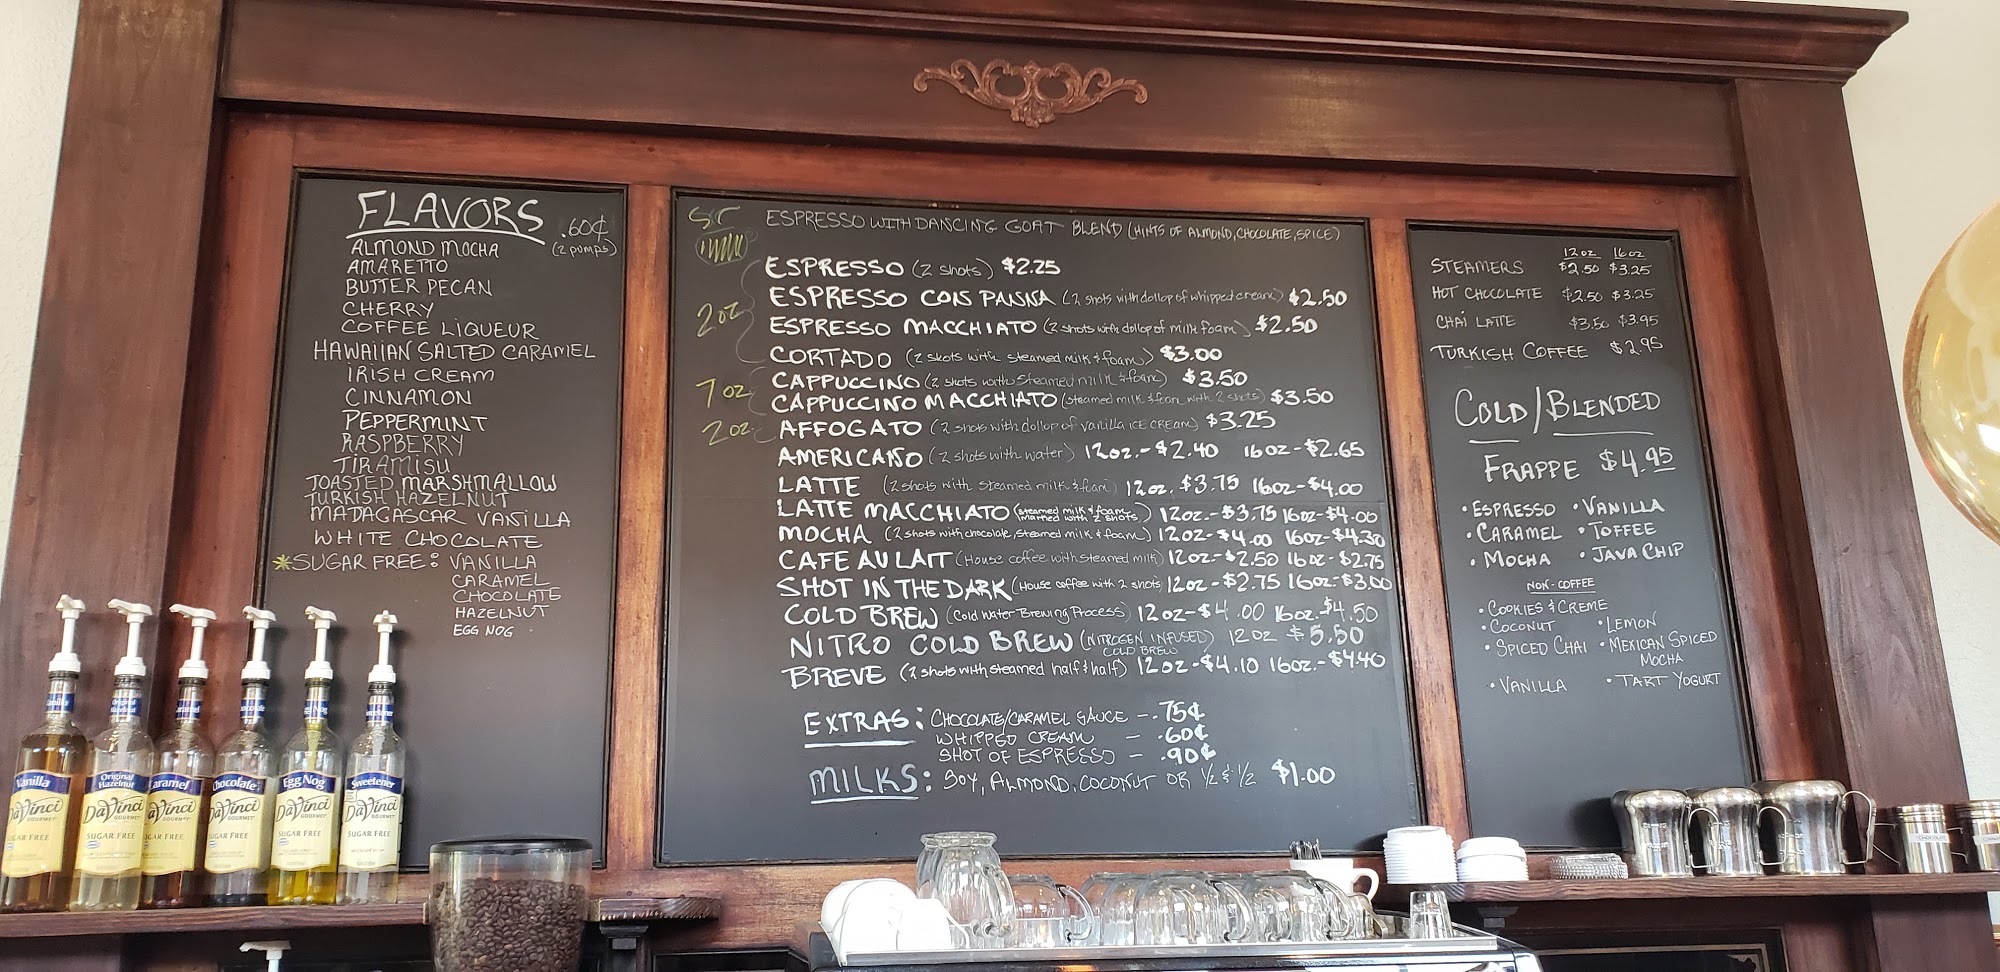 FLAVORS .60¢
(2 pumps)
ALMOND MOCHA
AMARETTO
BUTTER PECAN
CHERRY
COFFEE LIQUEUR
HAWAIIAN SALTED CARAMEL
IRISH CREAM
CINNAMON
PEPPERMINT
RASPBERRY
TIRAMISU
TOASTED MARSHMALLOW
TURKISH HAZELNUT
MADAGASCAR VANILLA
WHITE CHOCOLATE
*SUGAR FREE: VANILLA
CARAMEL
CHOCOLATE
HAZELNUT
EGG NOG
ESPRESSO WITH DANCING GOAT BLEND (HINTS OF ALMOND, CHOCOLATE, SPICE)
ESPRESSO (2 shots) $2.25
ESPRESSO CON PANNA (2 shots with dollop of whipped cream) $2.50
2oz
ESPRESSO MACCHIATO (2 shots with dollop of milk foam) $2.50
CORTADO (2 shots with steamed milk & foam) $3.00
CAPPUCCINO (2 shots with steamed milk & foam) $3.50
7oz
CAPPUCCINO MACCHIATO (steamed milk & foam with 2 shots) $3.50
2oz AFFOGATO (2 shots with dollop of vanilla ICE CREAM) $3.25
AMERICANO (2 shots with water) 12oz.-$2.40 16oz-$2.65
LATTE (2 shots with steamed milk & foam) 12oz. $3.75 16oz-$4.00
LATTE MACCHIATO (steamed milk & foam marked with 2 shots) 12oz.-$3.75 16oz-$4.00
MOCHA (2 shots with chocolate, steamed milk & foam) 12oz-$4.00 16oz-$4.30
CAFE AU LAIT (House coffee with steamed milk) 12oz-$2.50 16oz-$2.75
SHOT IN THE DARK (House coffee with 2 shots 12oz-$2.75 16oz-$3.00
COLD BREW (Cold Water Brewing Process) 12oz-$4.00 16oz-$4.50
NITRO COLD BREW (NITROGEN INFUSED) 12oz $5.50
COLD BREW
BREVE (2 shots with steamed half & half) 12oz-$4.10 16oz.-$4.40
EXTRAS: CHOCOLATE/CARAMEL SAUCE -.75¢
WHIPPED CREAM - .60¢
SHOT OF ESPRESSO - .90¢
MILKS: SOY, ALMOND, COCONUT OR ½ & ½ $1.00
12oz 16oz
STEAMERS $2.50 $3.25
HOT CHOCOLATE $2.50 $3.25
CHAI LATTE $3.50 $3.95
TURKISH COFFEE $2.95
COLD/BLENDED
FRAPPE $4.95
• ESPRESSO • VANILLA
• CARAMEL • TOFFEE
• MOCHA • JAVA CHIP
NON-COFFEE
• COOKIES & CREME
• COCONUT • LEMON
• SPICED CHAI • MEXICAN SPICED
MOCHA
• VANILLA • TART YOGURT
Vanilla
DaVinci
GOURMET
SUGAR FREE
Original
Hazelnut
DaVinci
GOURMET
SUGAR FREE
Caramel
DaVinci
SUGAR FREE
Chocolate
DaVinci
GOURMET
SUGAR FREE
Egg Nog
DaVinci
GOURMET
SUGAR FREE
Sweetener
DaVinci
GOURMET
SUGAR FREE
CHOCOLATE